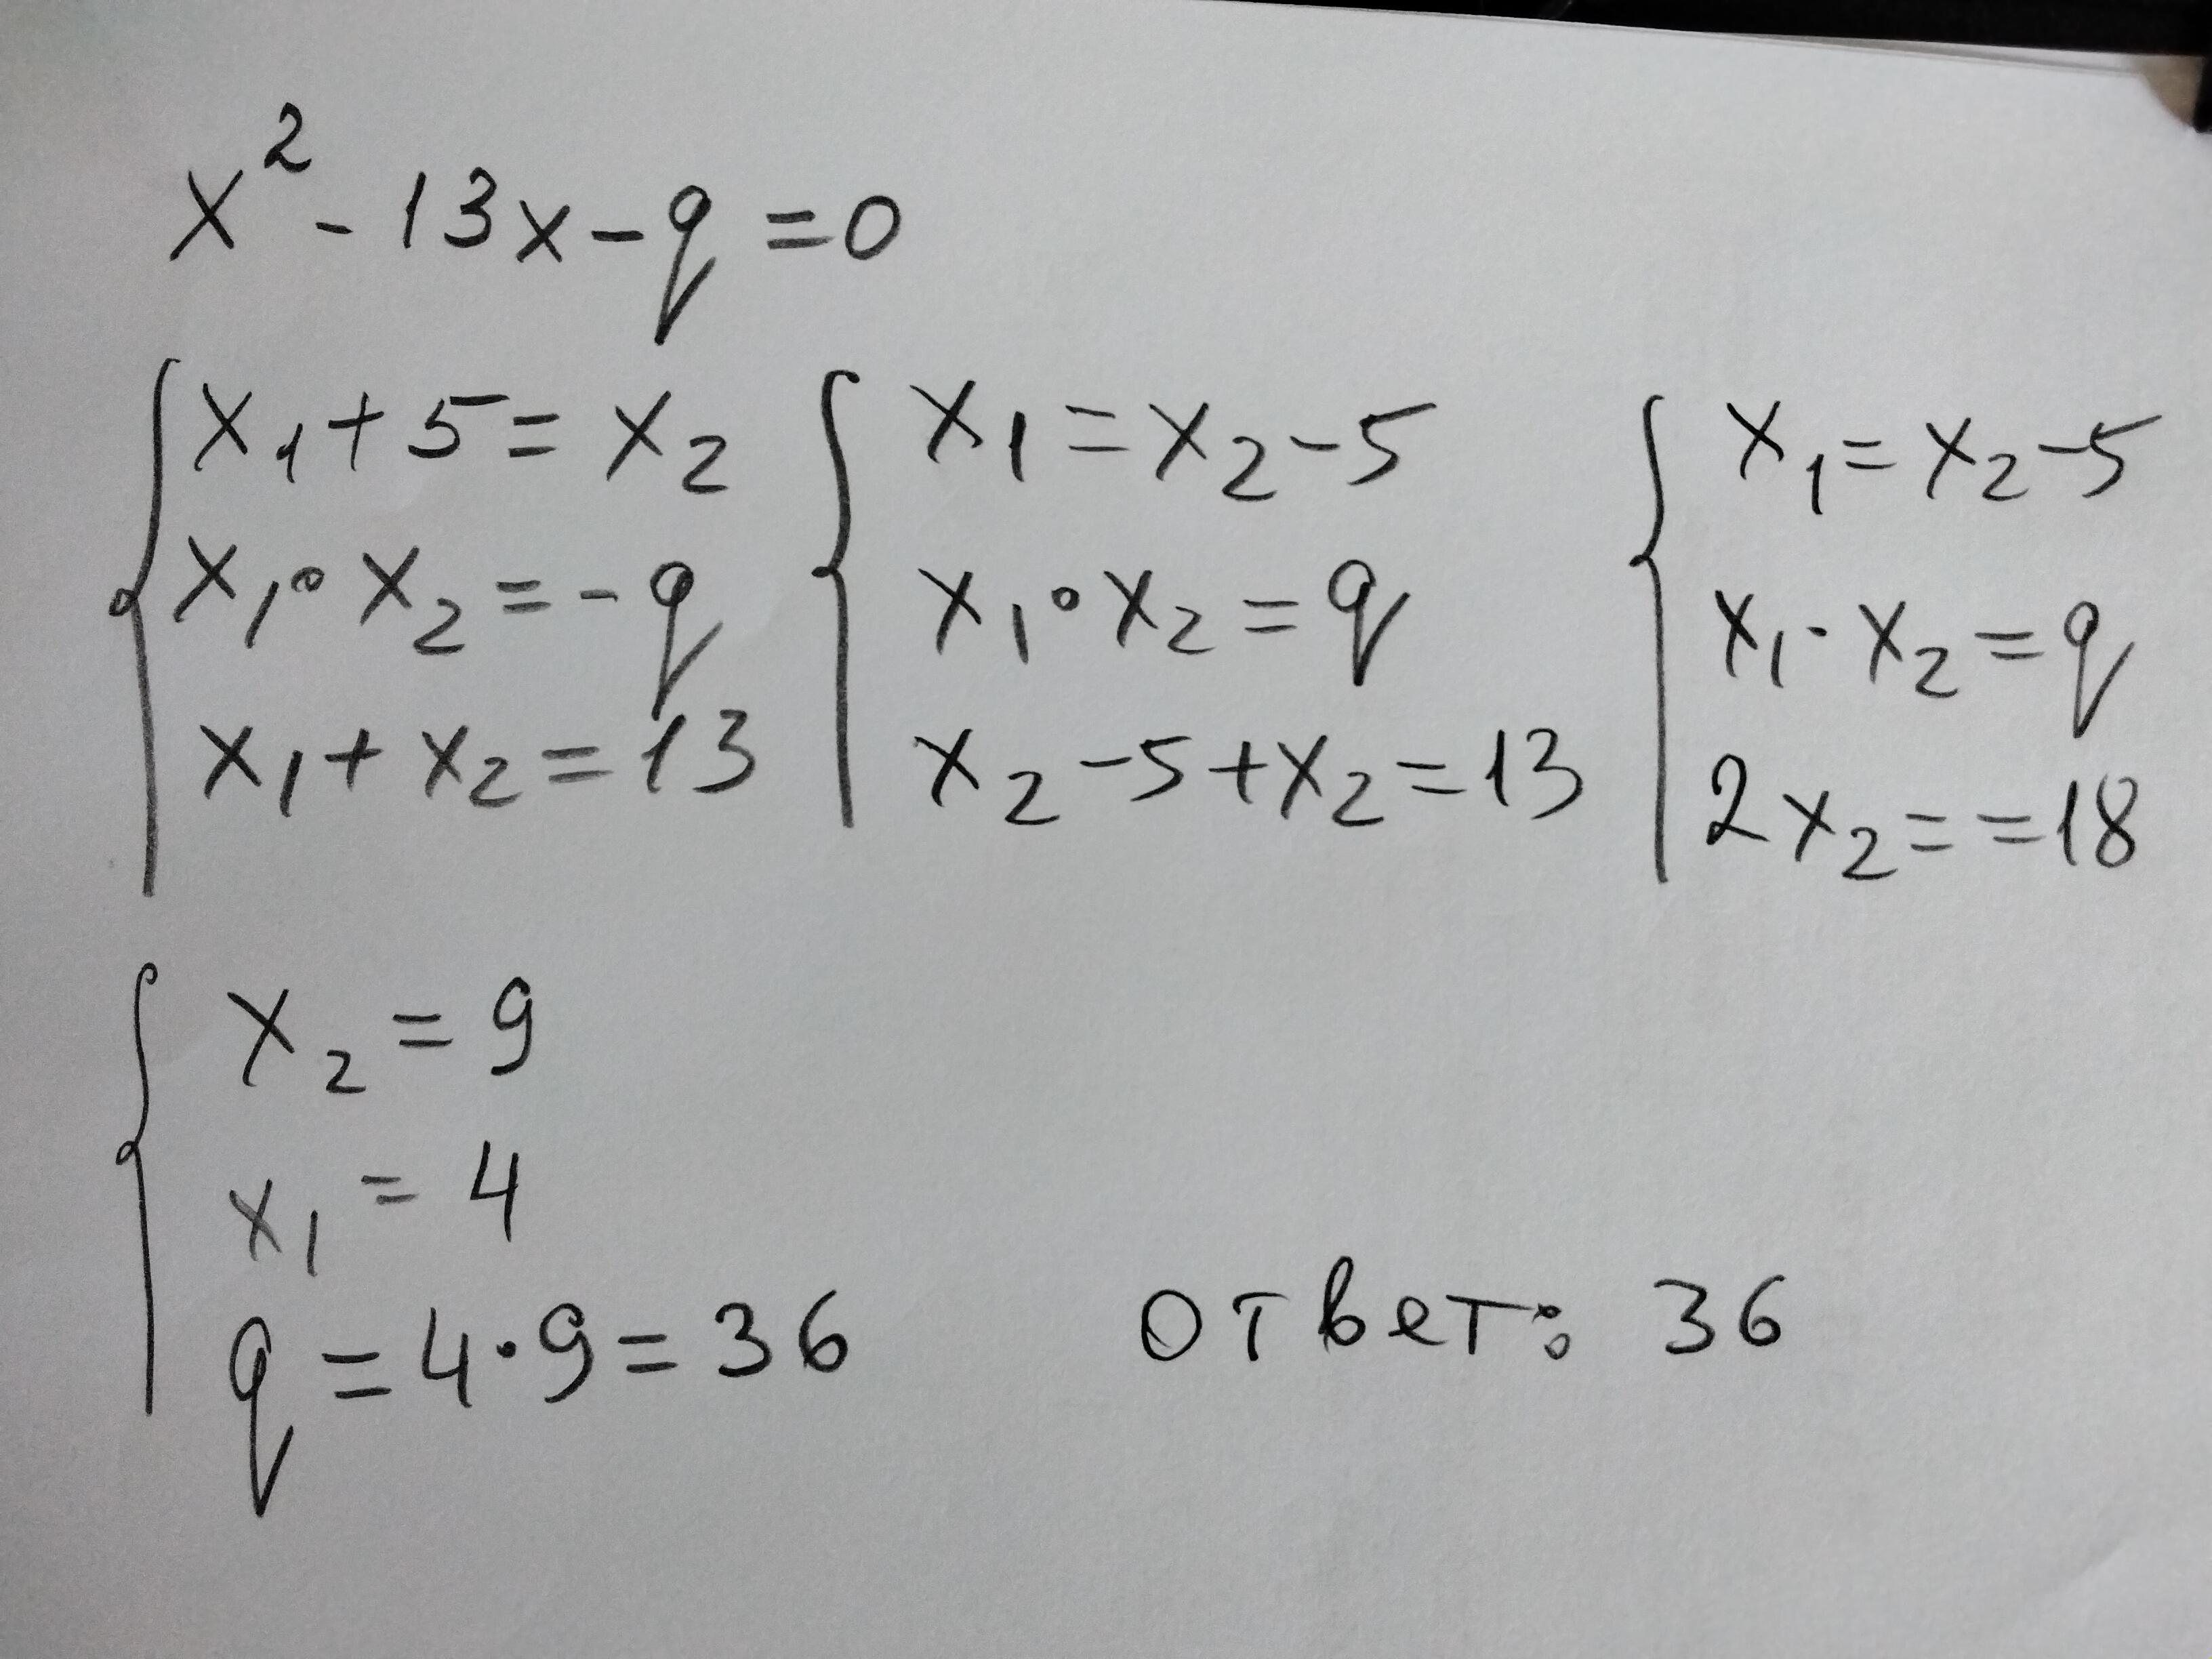 x² - 13x - q = 0
x₁ + 5 = x₂
x₁ · x₂ = - q
x₁ + x₂ = 13
x₁ = x₂ - 5
x₁ · x₂ = q
x₂ - 5 + x₂ = 13
x₁ = x₂ - 5
x₁ · x₂ = q
2x₂ = = 18
x₂ = 9
x₁ = 4
q = 4 · 9 = 36
ответ: 36